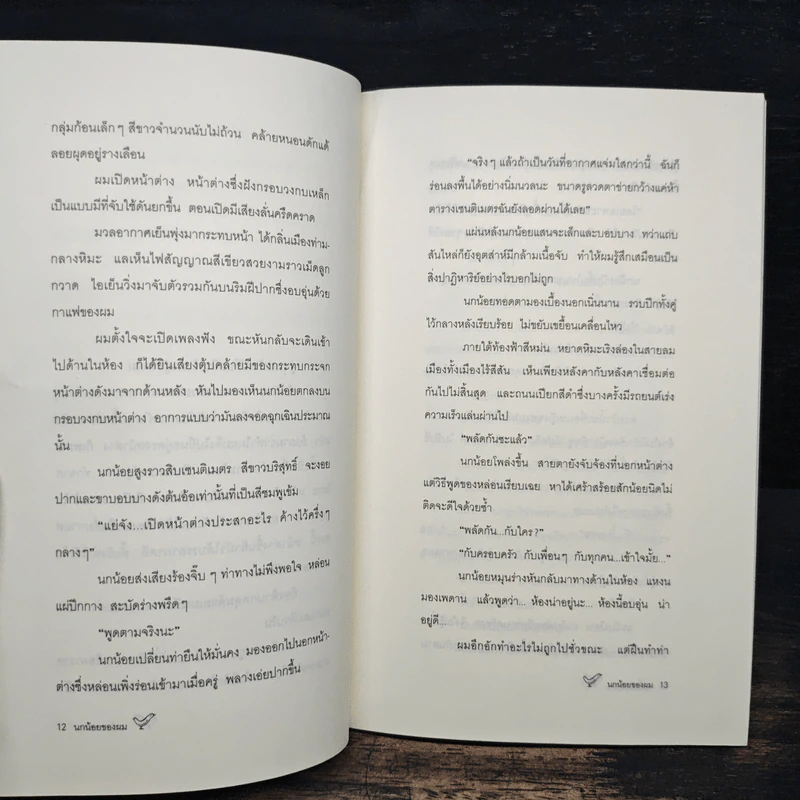 กลุ่มก้อนเล็กๆ สีขาวจำนวนนับไม่ถ้วน คล้ายหนอนดักแด้
ลอยผุดอยู่รางเลือน
ผมเปิดหน้าต่าง หน้าต่างซึ่งฝังกรอบวงกบเหล็ก
เป็นแบบมีที่จับใช้ดันยกขึ้น ตอนเปิดมีเสียงลั่นครืดคราด
มวลอากาศเย็นพุ่งมากระทบหน้า ได้กลิ่นเมืองท่าม-
กลางหิมะ และเห็นไฟสัญญาณสีเขียวสวยงามราวเม็ดลูก
กวาด ไอเย็นวิ่งมาจับตัวรวมกันบนริมฝีปากซึ่งอบอุ่นด้วย
กาแฟของผม
ผมตั้งใจจะเปิดเพลงฟัง ขณะหันกลับจะเดินเข้า
ไปด้านในห้อง ก็ได้ยินเสียงตุ้บคล้ายมีของกระทบกระจก
หน้าต่างดังมาจากด้านหลัง หันไปมองเห็นนกน้อยตกลงบน
กรอบวงกบหน้าต่าง อาการแบบว่ามันลงจอดฉุกเฉินประมาณ
นั้น
นกน้อยสูงราวสิบเซนติเมตร สีขาวบริสุทธิ์ จะงอย
ปากและขาบอบบางดังต้นอ้อเท่านั้นที่เป็นสีชมพูเข้ม
“แย่จัง...เปิดหน้าต่างประสาอะไร ค้างไว้ครึ่งๆ
กลางๆ”
นกน้อยส่งเสียงร้องจิ๊บๆ ท่าทางไม่พึงพอใจ หล่อน
แผ่ปีกกาง สะบัดร่างพรืดๆ
“พูดตามจริงนะ”
นกน้อยเปลี่ยนท่ายืนให้มั่นคง มองออกไปนอกหน้า-
ต่างซึ่งหล่อนเพิ่งร่อนเข้ามาเมื่อครู่ พลางเอ่ยปากขึ้น
12 นกน้อยของผม
“จริงๆ แล้วถ้าเป็นวันที่อากาศแจ่มใสกว่านี้ ฉันก็
ร่อนลงพื้นได้อย่างนิ่มนวลนะ ขนาดรูลวดตาข่ายกว้างแค่ห้า
ตารางเซนติเมตรฉันยังลอดผ่านได้เลย”
แผ่นหลังนกน้อยแสนจะเล็กและบอบบาง ทว่าแถบ
สันไหล่ก็ยังอุตส่าห์มีกล้ามเนื้อจับ ทำให้ผมรู้สึกเสมือนเป็น
สิ่งปาฏิหาริย์อย่างไรบอกไม่ถูก
นกน้อยทอดตามองเบื้องนอกเนิ่นนาน รวบปีกทั้งคู่
ไว้กลางหลังเรียบร้อย ไม่ขยับเขยื้อนเคลื่อนไหว
ภายใต้ท้องฟ้าสีหม่น หยาดหิมะเริงล่องในสายลม
เมืองทั้งเมืองไร้สีสัน เห็นเพียงหลังคากับหลังคาเชื่อมต่อ
กันไปไม่สิ้นสุด และถนนเปียกสีดำซึ่งบางครั้งมีรถยนต์เร่ง
ความเร็วแล่นผ่านไป
“พลัดกันซะแล้ว”
นกน้อยโพล่งขึ้น สายตายังจับจ้องที่นอกหน้าต่าง
แต่วิธีพูดของหล่อนเรียบเฉย หาได้เศร้าสร้อยสักน้อยนิดไม่
ติดจะดีใจด้วยซ้ำ
“พลัดกัน...กับใคร?”
“กับครอบครัว กับเพื่อนๆ กับทุกคน...เข้าใจมั้ย...”
นกน้อยหมุนร่างหันกลับมาทางด้านในห้อง แหงน
มองเพดาน แล้วพูดว่า... ห้องน่าอยู่นะ... ห้องนี้อบอุ่น น่า
อยู่ดี...
ผมอึกอักทำอะไรไม่ถูกไปชั่วขณะ แต่ฝืนทำท่า
นกน้อยของผม 13